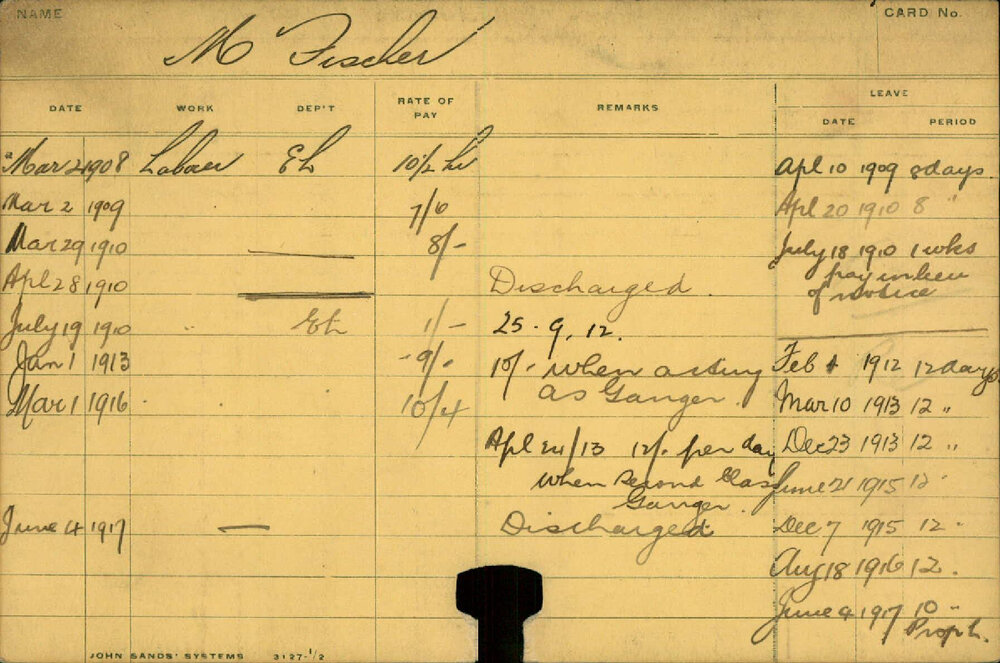 NAME
CARD No.
M Fischer
DATE WORK DEP'T RATE OF PAY REMARKS LEAVE
DATE PERIOD
Mar 2 1908 Labour EL 10½ hr Apl 10 1909 8 days
Mar 2 1909 7/6 Apl 20 1910 8 "
Mar 29 1910 8/- July 18 1910 1 wks
pay in lieu
of notice
Apl 28 1910 Discharged.
July 19 1910 " EL 25.9.12.
Jan 1 1913 9/- 10/- when acting Feb 1912 12 days
as Ganger.
Mar 1 1916 10/4 Mar 10 1913 12 "
Apl 24/13 12/- per day Dec 23 1913 12 "
when second Class June 21 1915 12 "
Ganger.
June 4 1917 — Discharged Dec 7 1915 12 "
Aug 18 1916 12.
June 4 1917 10 "
Prop L.
JOHN SANDS' SYSTEMS 3127-1/2